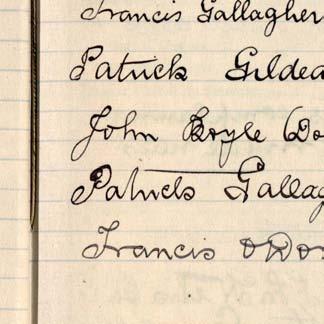 Francis Gallagher
Patrick Gildea
John Boyle (Do
Patrick Gallag
Francis O'Do